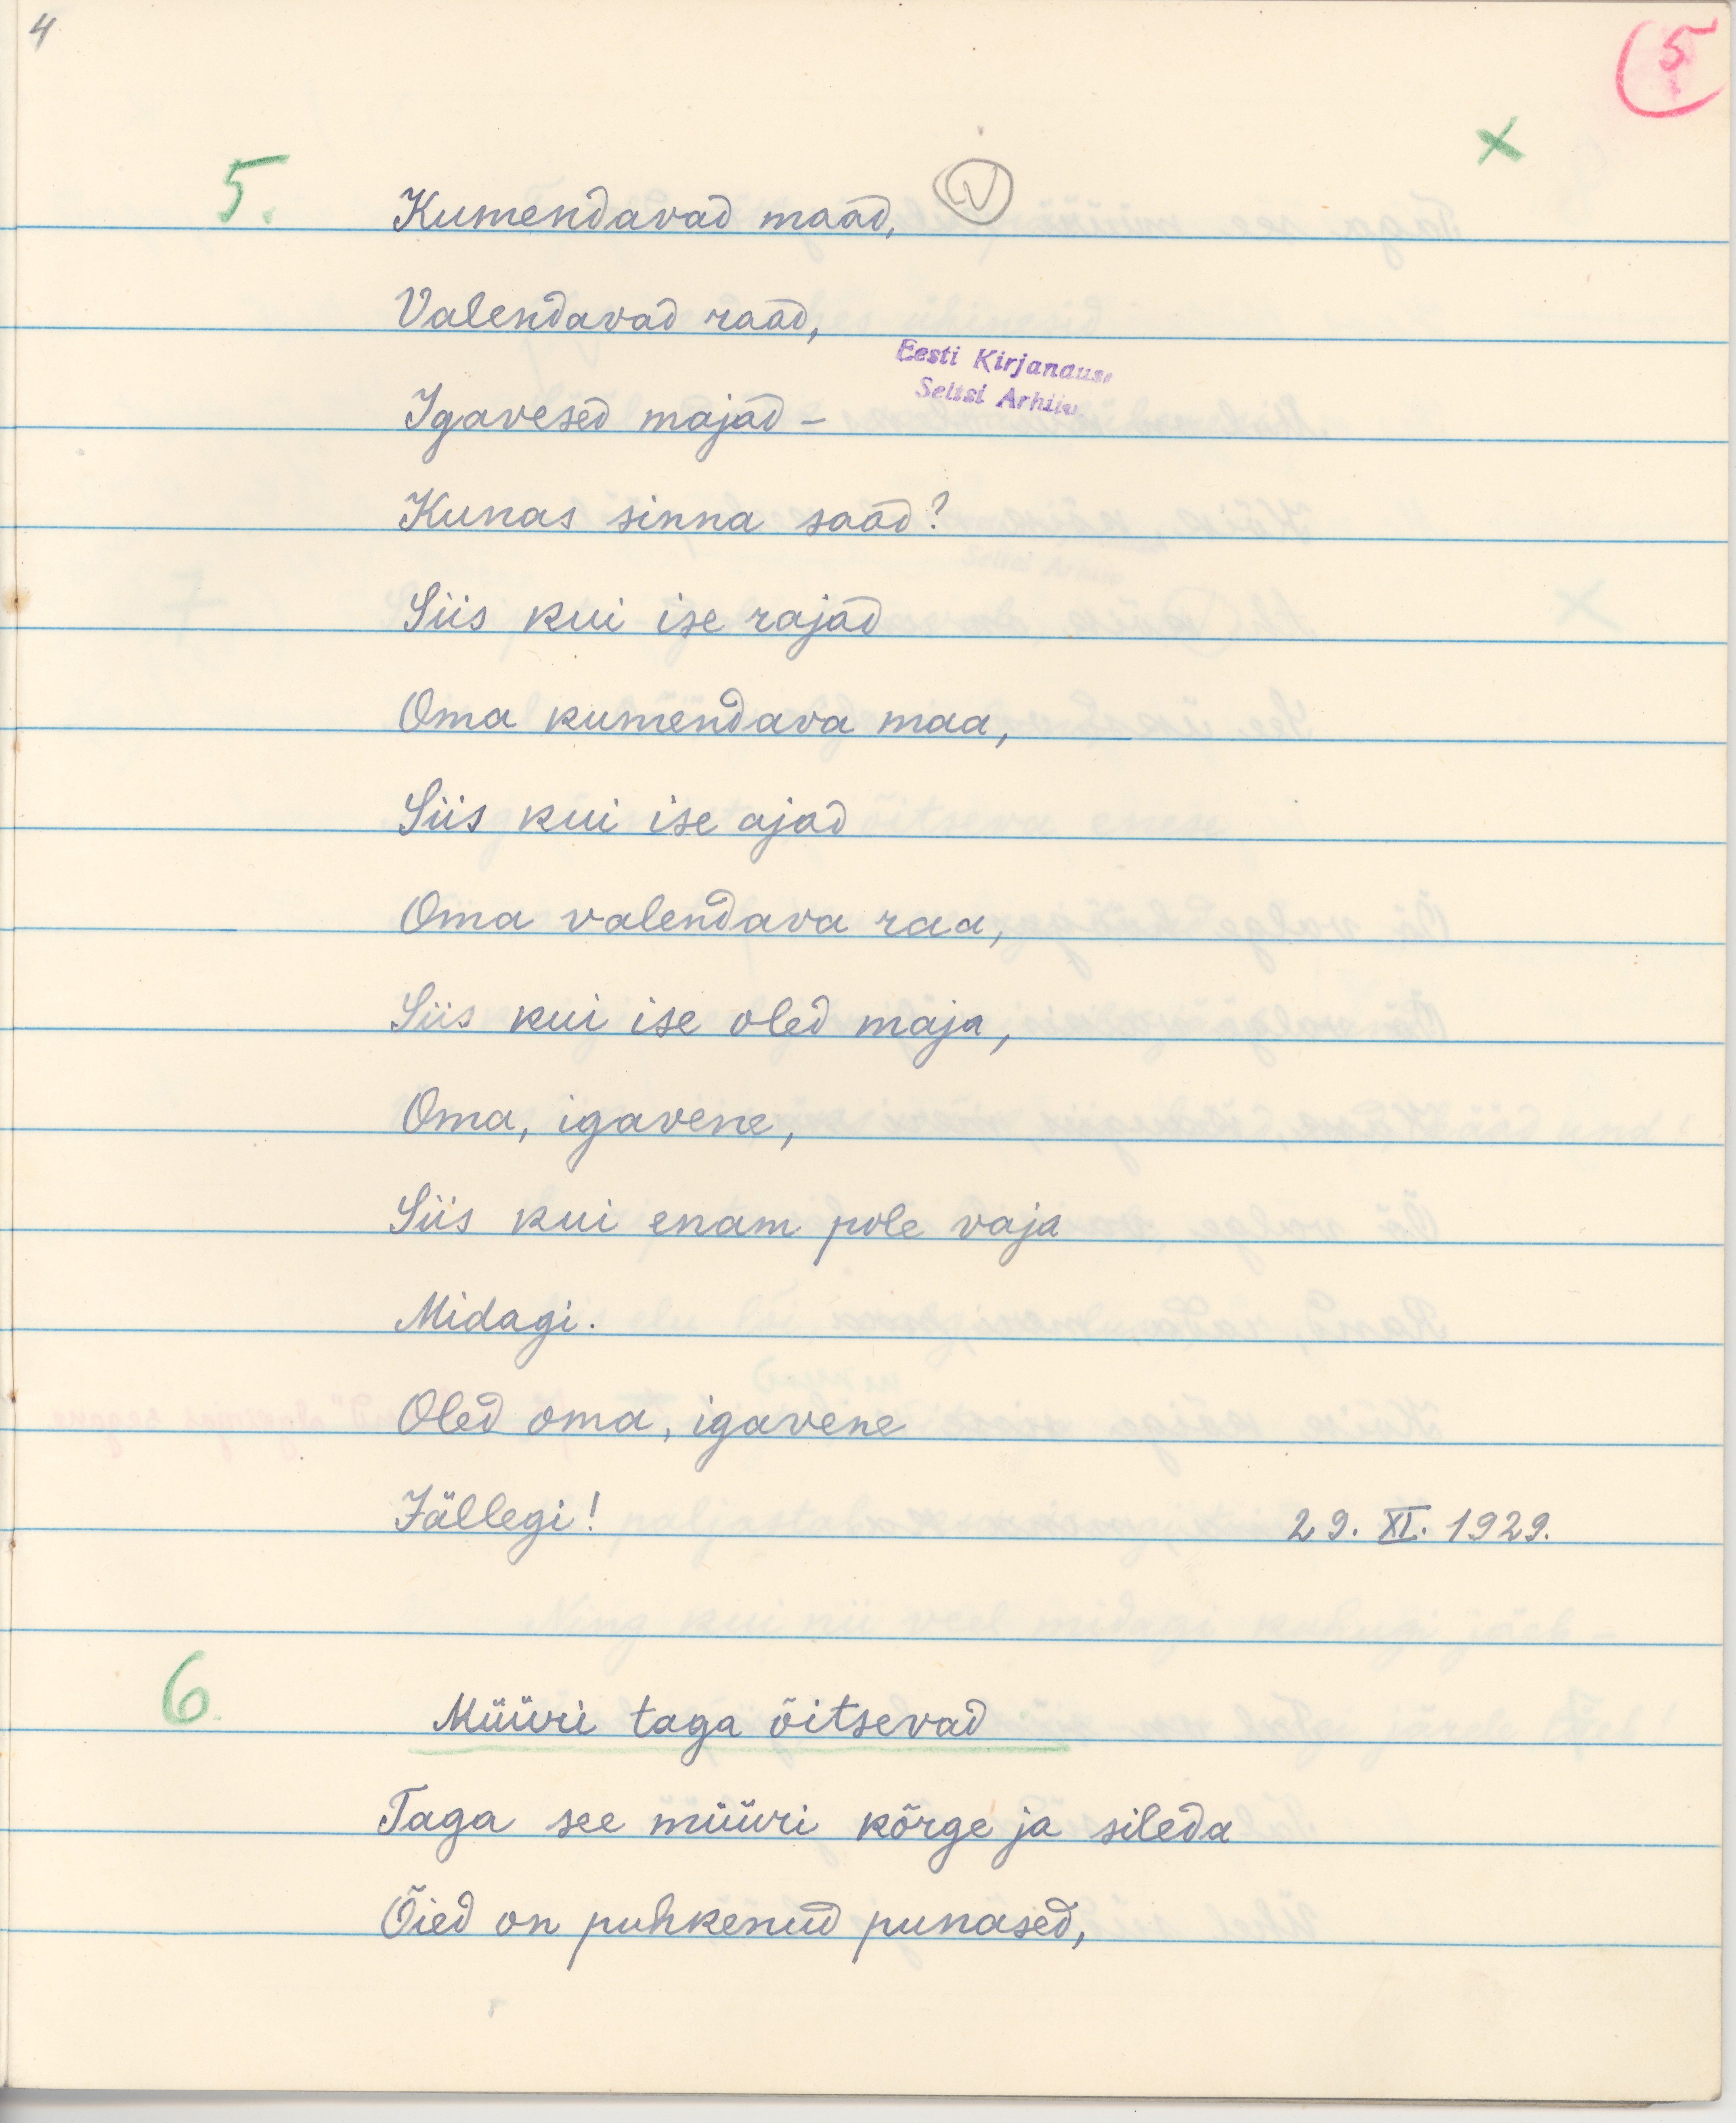 4
5
x
5.
Kumendavad maad,
V
Valendavad raad,
Eesti Kirjanduse
Seltsi Arhiiv
Igavesed majad –
Kunas sinna saad?
Siis kui ise rajad
Oma kumendava maa,
Siis kui ise ajad
Oma valendava raa,
Siis kui ise oled maja,
Oma, igavene,
Siis kui enam pole vaja
Midagi.
Oled oma, igavene
Jällegi!
29. XI. 1929.
6.
Müüri taga õitsevad
Taga see müüri kõrge ja sileda
Õied on puhkenud punased,